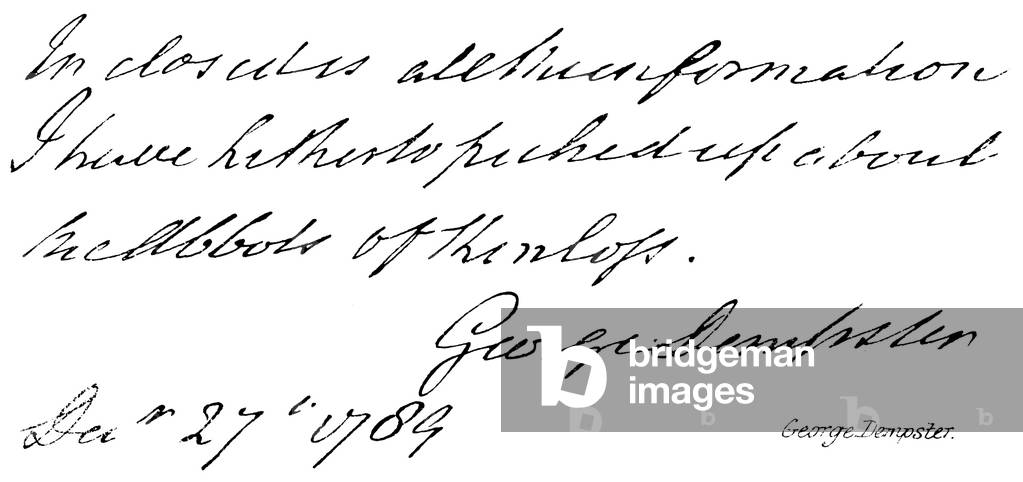 Inclosed is all the information
I have hitherto picked up about
the Abbots of Kinloss.
George Dempster
Decr 27th 1789
George Dempster.
b bridgeman
images
b b b b